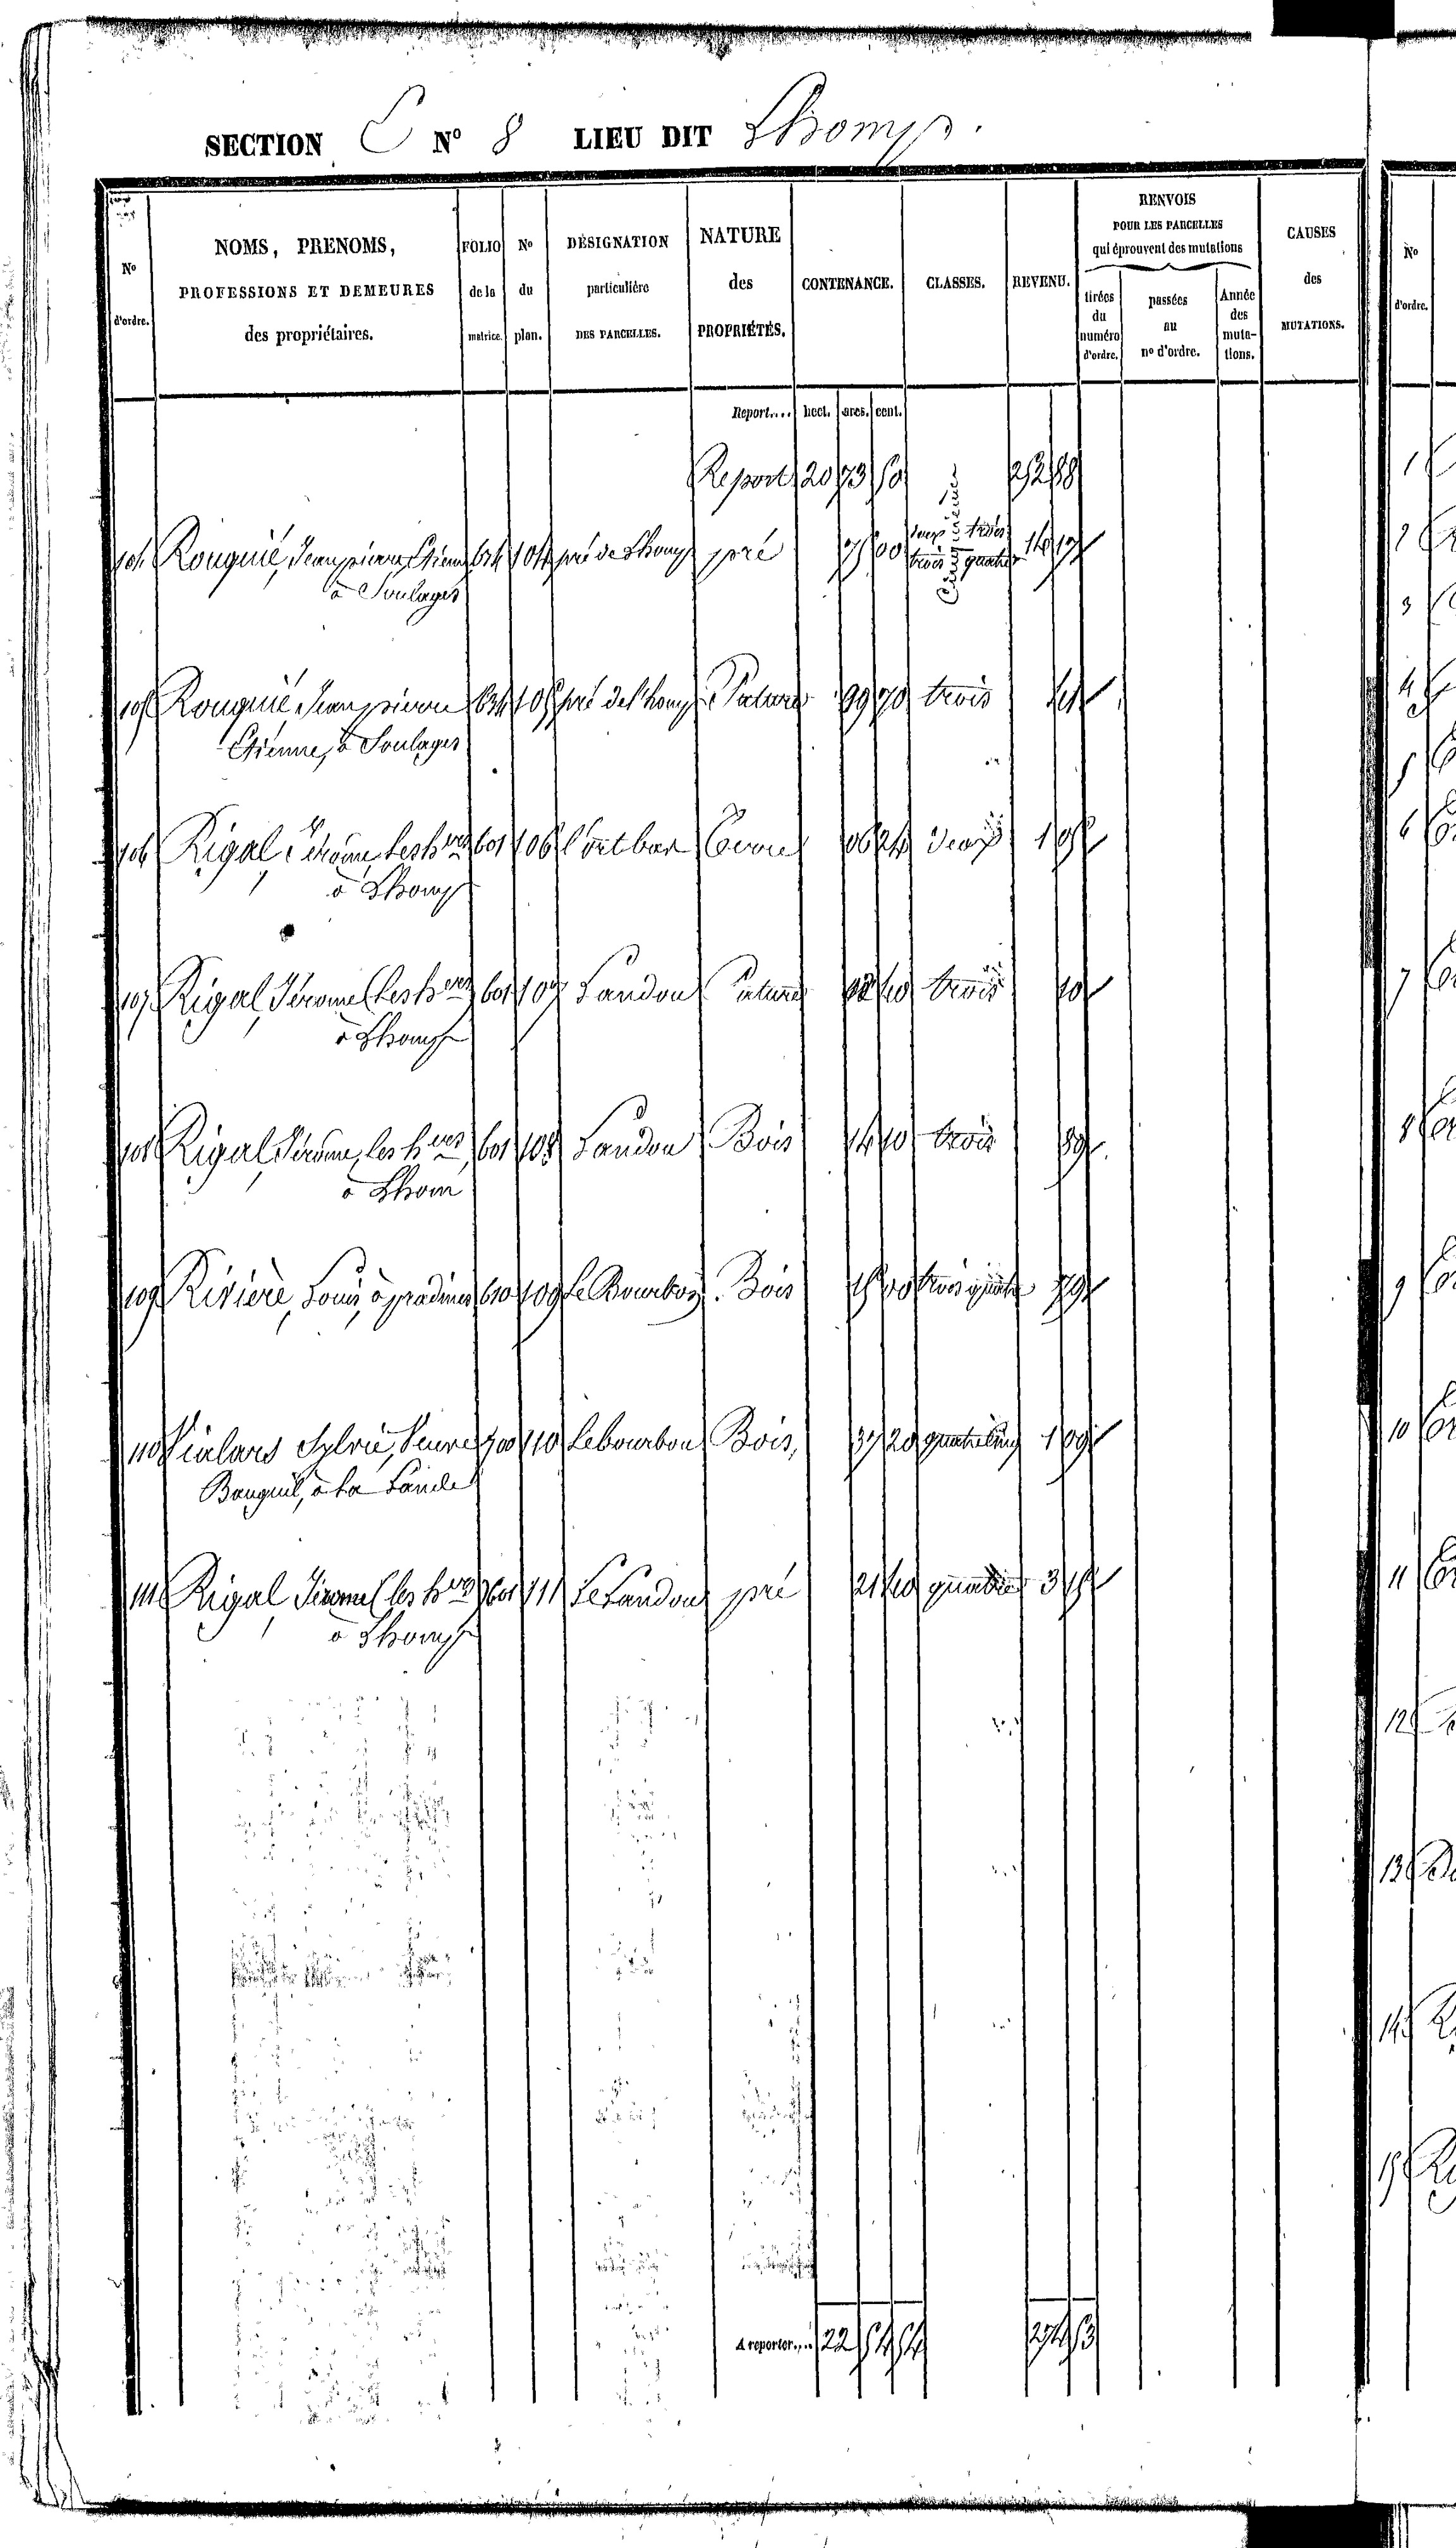 SECTION C N° 8 LIEU DIT Lhomp.
N° d'ordre.
NOMS, PRENOMS, PROFESSIONS ET DEMEURES des propriétaires.
FOLIO de la matrice.
N° du plan.
DÉSIGNATION particulière DES PARCELLES.
NATURE des PROPRIÉTÉS.
CONTENANCE.
CLASSES.
REVENU.
RENVOIS POUR LES PARCELLES qui éprouvent des mutations
tirées du numéro d'ordre.
passées au n° d'ordre.
Année des muta-tions.
CAUSES des MUTATIONS.
N° d'ordre.
Report.... hect. ares. cent.
Report 20 73 50 252 88
104 Rouquié, Jean pierre Etienne 634 104 pré de Lhomp pré 75 00 deux trois trois quatre 14 17
à Soulages
105 Rouquié Jean pierre 634 105 pré de Lhomp Pature 99 70 trois
Etienne, à Soulages
106 Rigal Jérôme, les hers 601 106 06 24 deux 1 05
à Lhomp
107 Rigal, Jérome (les hers 601 107 Landou Pature 40 trois 10
à Lhomp
108 Rigal Jérome, les hers 601 108 Landou Bois 14 10 trois 89
à Lhom
109 Rivière, Louis, à pradines 610 109 Le Bourbou Bois 15 00 trois quatre 79
110 Vialars Sylvie, Veuve 700 110 Lebourbou Bois, 37 20 quatre cinq 1 09
Bouquil, à la Lande
111 Rigal Jérome (les hers 601 111 Le Landou pré 21 40 quatre 3 15
à Lhomp
A reporter.... 22 54 54 274 53
1
2
3
4
5
6
7
8
9
10
11
12
13
14
15